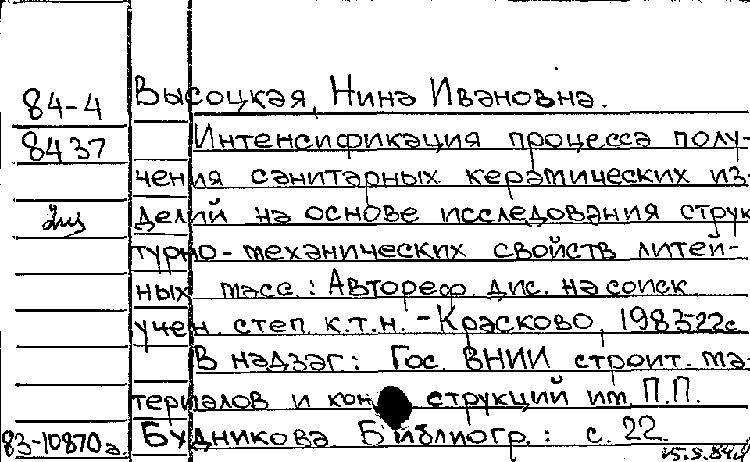 84-4 Высоцкая, Нина Ивановна.
8437 Интенсификация процесса полу-
чения санитарных керамических из-
делий на основе исследования струк
турно-механических свойств литей-
ных масс.: Автореф. дис. на соиск
учен. степ. к.т.н. -Красково, 1983-22с
В надзаг: Гос. ВНИИ строит. ма-
териалов и конструкций им. П.П.
83-10870а. Будникова. Библиогр.: с. 22.